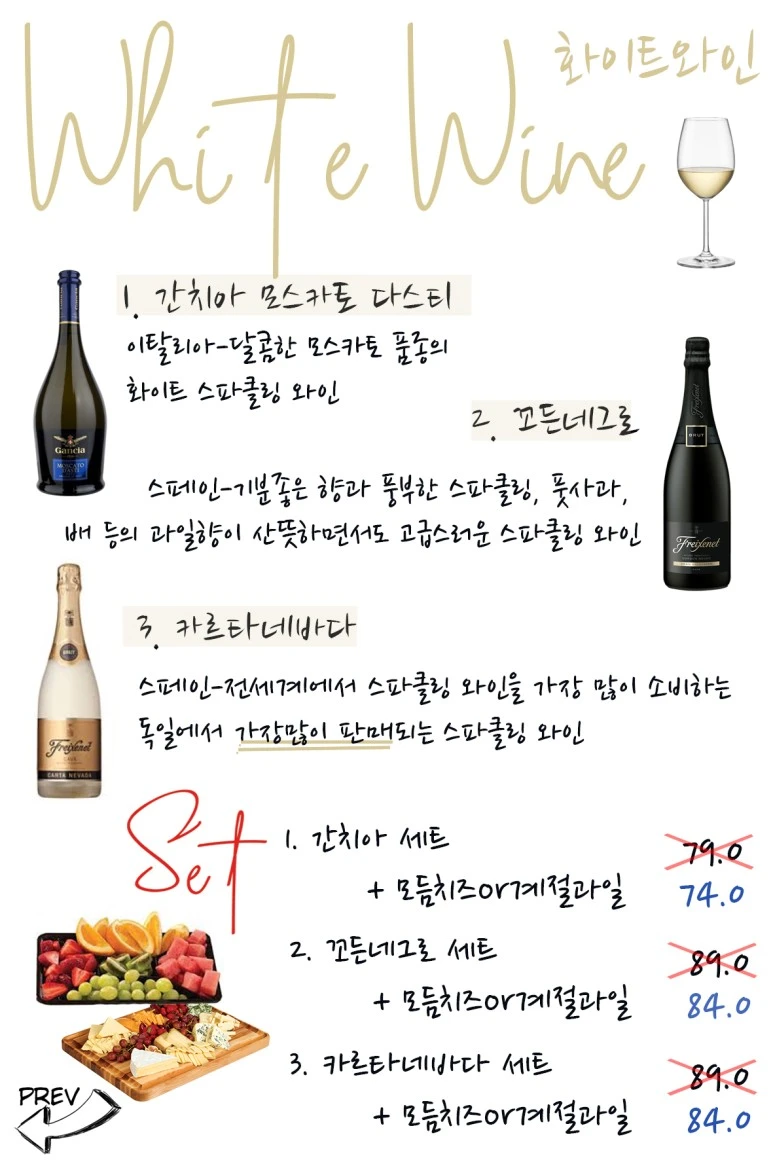 White Wine
화이트와인
1. 간치아 모스카토 다스티
이탈리아-달콤한 모스카토 품종의
화이트 스파클링 와인
Gancia
MOSCATO
D'ASTI
2. 꼬든네그로
스페인-기분좋은 향과 풍부한 스파클링, 풋사과,
배 등의 과일향이 산뜻하면서도 고급스러운 스파클링 와인
BRUT
Freixenet
3. 카르타네바다
스페인-전세계에서 스파클링 와인을 가장 많이 소비하는
독일에서 가장많이 판매되는 스파클링 와인
BRUT
Freixenet
CAVA
CARTA NEVADA
Set
1. 간치아 세트 79.0
+ 모듬치즈or계절과일 74.0
2. 꼬든네그로 세트 89.0
+ 모듬치즈or계절과일 84.0
3. 카르타네바다 세트 89.0
+ 모듬치즈or계절과일 84.0
PREV